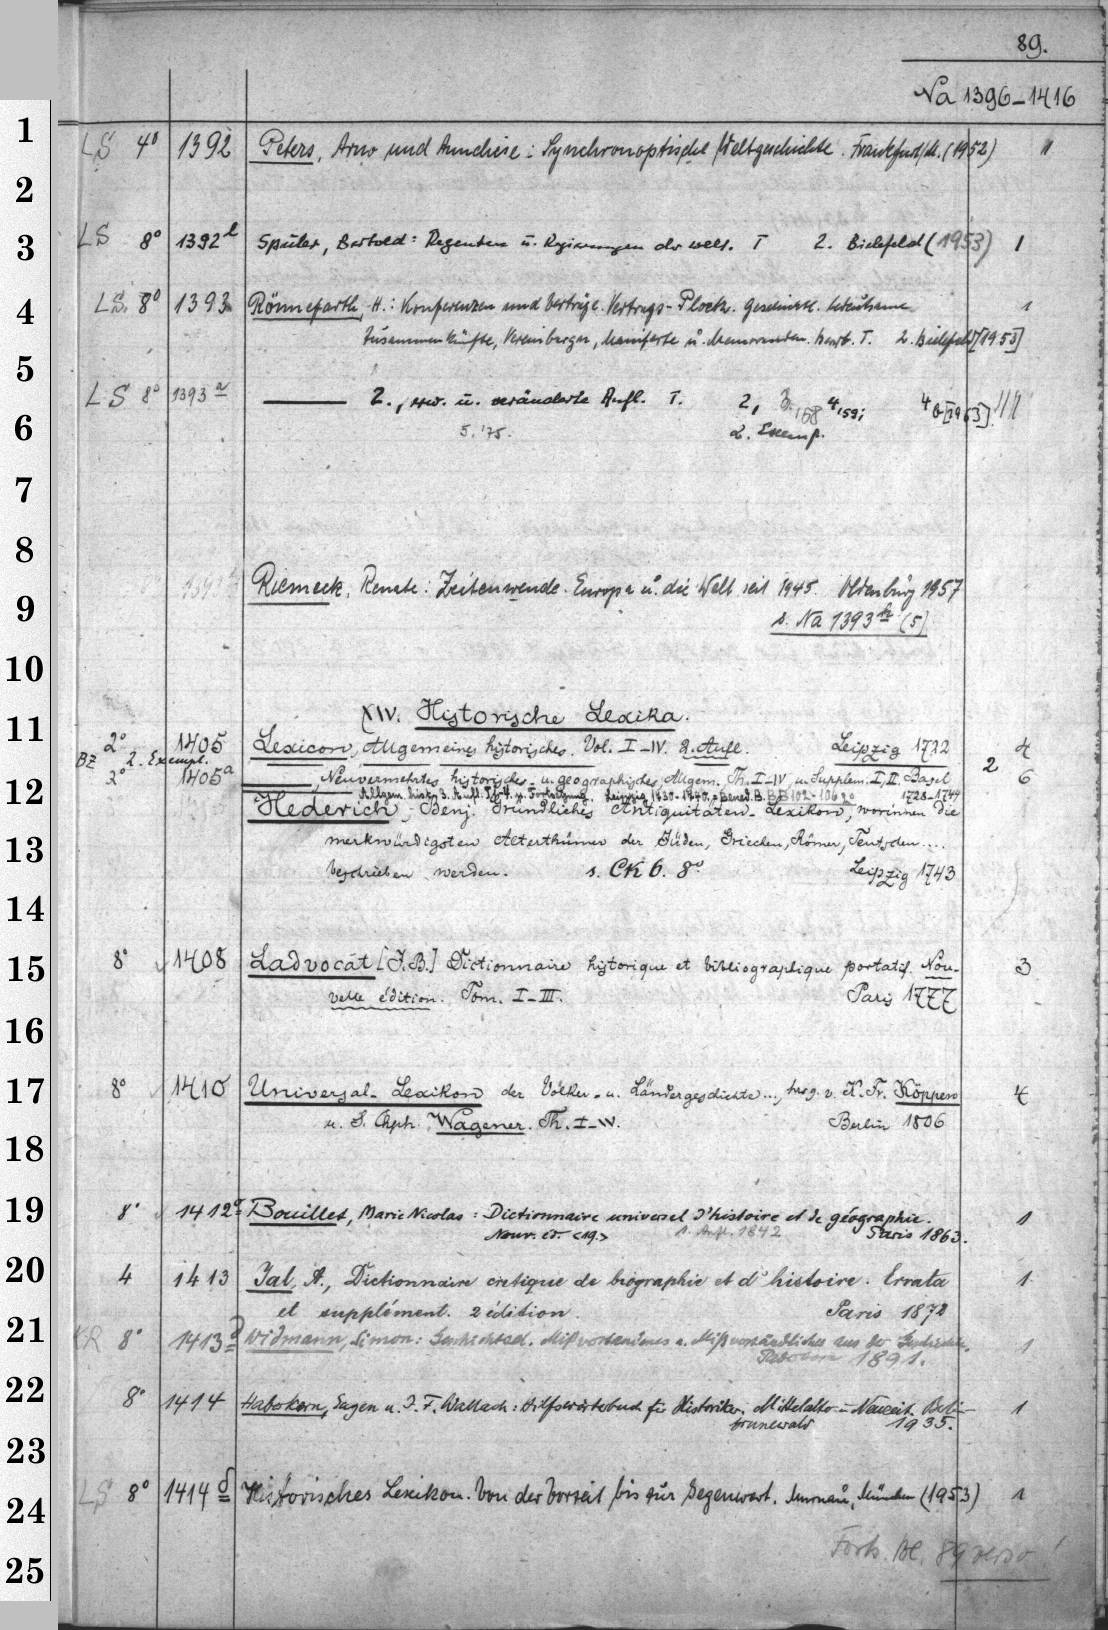 89.
Na 1396-1416
1
LS 4° 1392 Peters, Arno und Anneliese: Synchronoptische Weltgeschichte. Frankfurt/M. (1952) 1
2
3
LS 8° 1392 b Spuler, Bertold: Regenten u. Regierungen der Welt. T 2. Bielefeld (1953) 1
4
LS. 8° 1393 Rönnefarth, H.: Konferenzen und Verträge. Vertrags-Ploetz. 1
Zusammenkünfte, Vereinbargen, Manifeste u. Memoranden. T. 2. Bielefeld [1953]
5
LS 8° 1393 a ——— 2., erw. u. veränderte Aufl. T. 2, 3, 158 4,159;
5.'75. 2. Exempl.
6
7
8
Riemeck, Renate: Zeitenwende. Europa u. die Welt seit 1945. Oldenburg 1957
9
s. Na 1393 h (5)
10
11
XIV. Historische Lexika.
2° 1405 Lexicon, Allgemeines historisches. Vol. I-IV. 2. Aufl. Leipzig 1722 4
Bz 2. Exempl.
2° 1405 a ——— Neuvermehrtes historisches- u. geographisches Allgem. Th. I-IV u. Supplem. I, II. Basel 2 6
12
Allgem. hist. 3. Aufl. Leipzig 1730-1740 1726-1744
Hederich, Benj. Gründliches Antiquitäten-Lexikon, worinnen die
13
merkwürdigsten Alterthümer der Jüden, Griechen, Römer, Teutschen....
beschrieben werden. s. CK 6. 8° Leipzig 1743
14
15
8° 1408 Ladvocat [J. B.] Dictionnaire historique et bibliographique portatif. Nou- 3
velle édition. Tom. I-III. Paris 1777
16
17
8° 1410 Universal-Lexikon der Völker- u. Ländergeschichte..., hrsg. v. K. Fr. Köppen 4
u. S. Chph. Wagener. Th. I-IV. Berlin 1806
18
19
8° 1412 a Bouillet, Marie Nicolas: Dictionnaire universel d'histoire et de géographie. 1
Nouv. éd. <19.> 1. Aufl. 1842 Paris 1863.
20
4 1413 Jal, A., Dictionnaire critique de biographie et d'histoire. Errata 1
et supplément. 2 édition Paris 1872
21
KR 8° 1413 a Widmann, Simon: Geschichtsel. Mißverstandenes u. Mißverständliches aus der Geschichte. 1
Paderborn 1891.
22
8° 1414 Haberkern, Eugen u. J. F. Wallach: Hilfswörterbuch für Historiker. Mittelalter u. Neuzeit. Berlin- 1
Grunewald 1935.
23
24
LS 8° 1414 d Historisches Lexikon. Von der Vorzeit bis zur Gegenwart. Murnau, München (1953) 1
Forts. Bl. 89 verso!
25